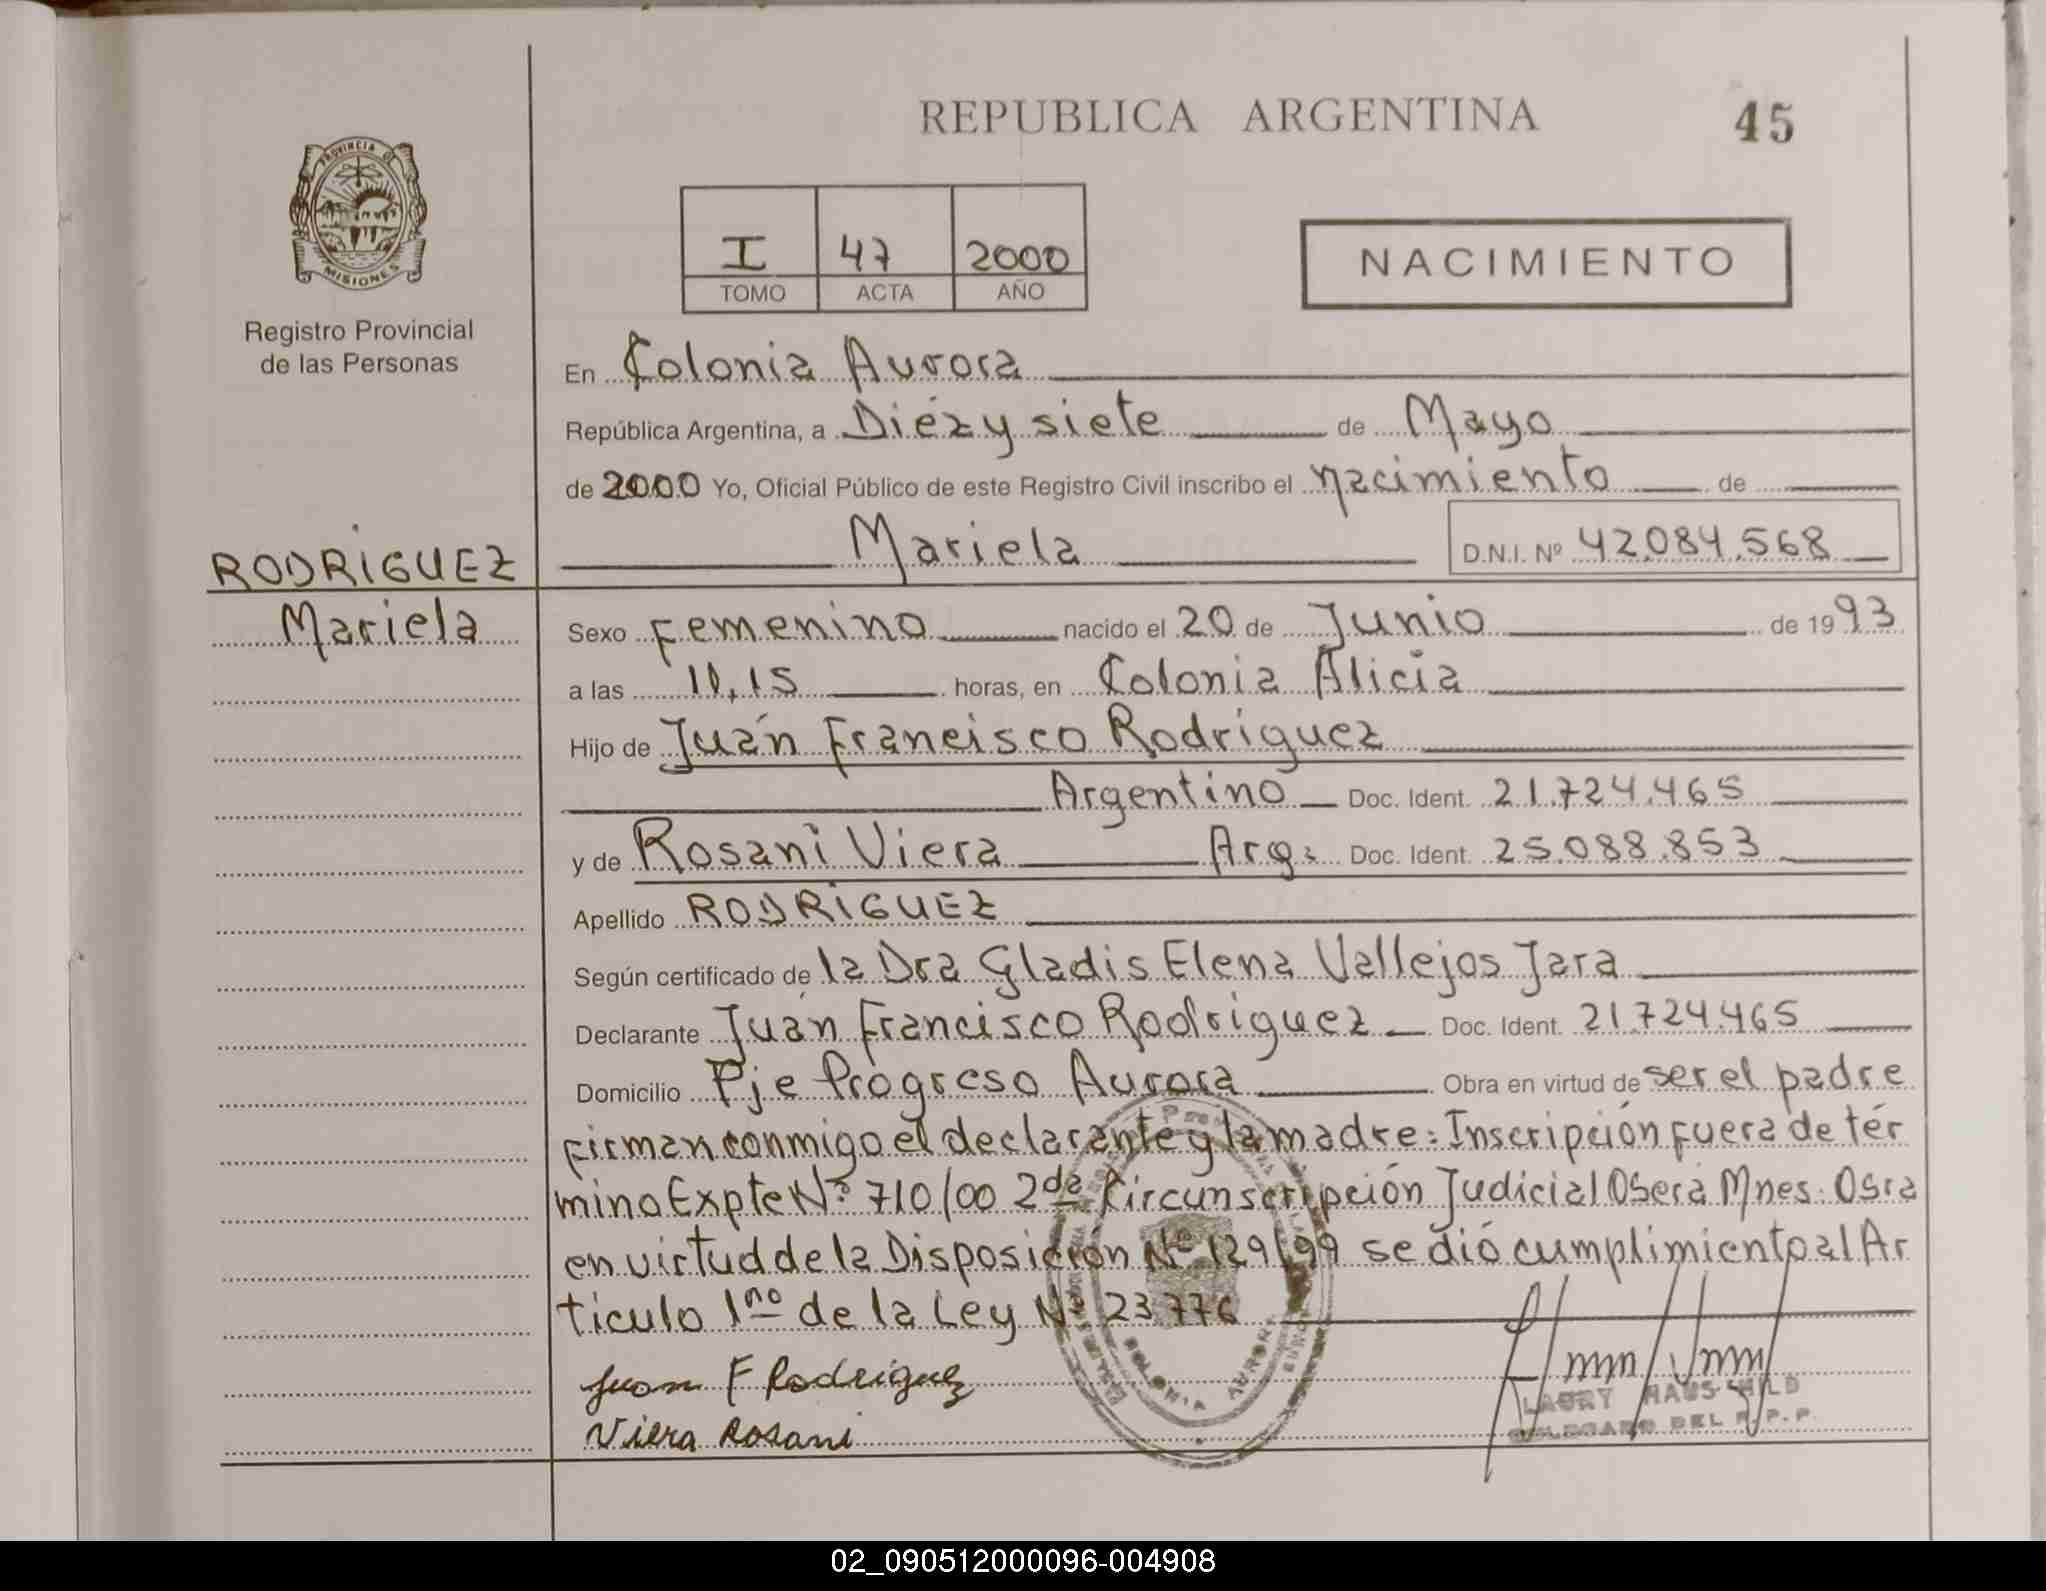 REPUBLICA ARGENTINA
45
PROVINCIA DE
MISIONES
Registro Provincial
de las Personas
I 47 2000
TOMO ACTA AÑO
NACIMIENTO
En Colonia Aurora
República Argentina, a Diéz y siete de Mayo
de 2000 Yo, Oficial Público de este Registro Civil inscribo el nacimiento de
Mariela D.N.I. Nº 42.084.568
RODRIGUEZ
Mariela
Sexo Femenino nacido el 20 de Junio de 1993
a las 11,15 horas, en Colonia Alicia
Hijo de Juán Francisco Rodriguez
Argentino Doc. Ident. 21.724.465
y de Rosani Viera Arg: Doc. Ident. 25.088.853
Apellido RODRIGUEZ
Según certificado de la Dra Gladis Elena Vallejos Jara
Declarante Juán Francisco Rodriguez Doc. Ident. 21.724.465
Domicilio Pje Progreso Aurora Obra en virtud de ser el padre
firman conmigo el declarante y la madre: Inscripción fuera de tér
mino Expte Nº 710/00 2da Circunscripción Judicial Oberá Mnes. Osra
en virtud de la Disposición Nº 129/99 se dió cumplimiento al Ar
ticulo 1no de la Ley Nº 23776
Juan F Rodriguez
Viera Rosani
COLONIA AURORA
LAURY HAUSCHILD
DELEGADO DEL R.P.P.
02_090512000096-004908